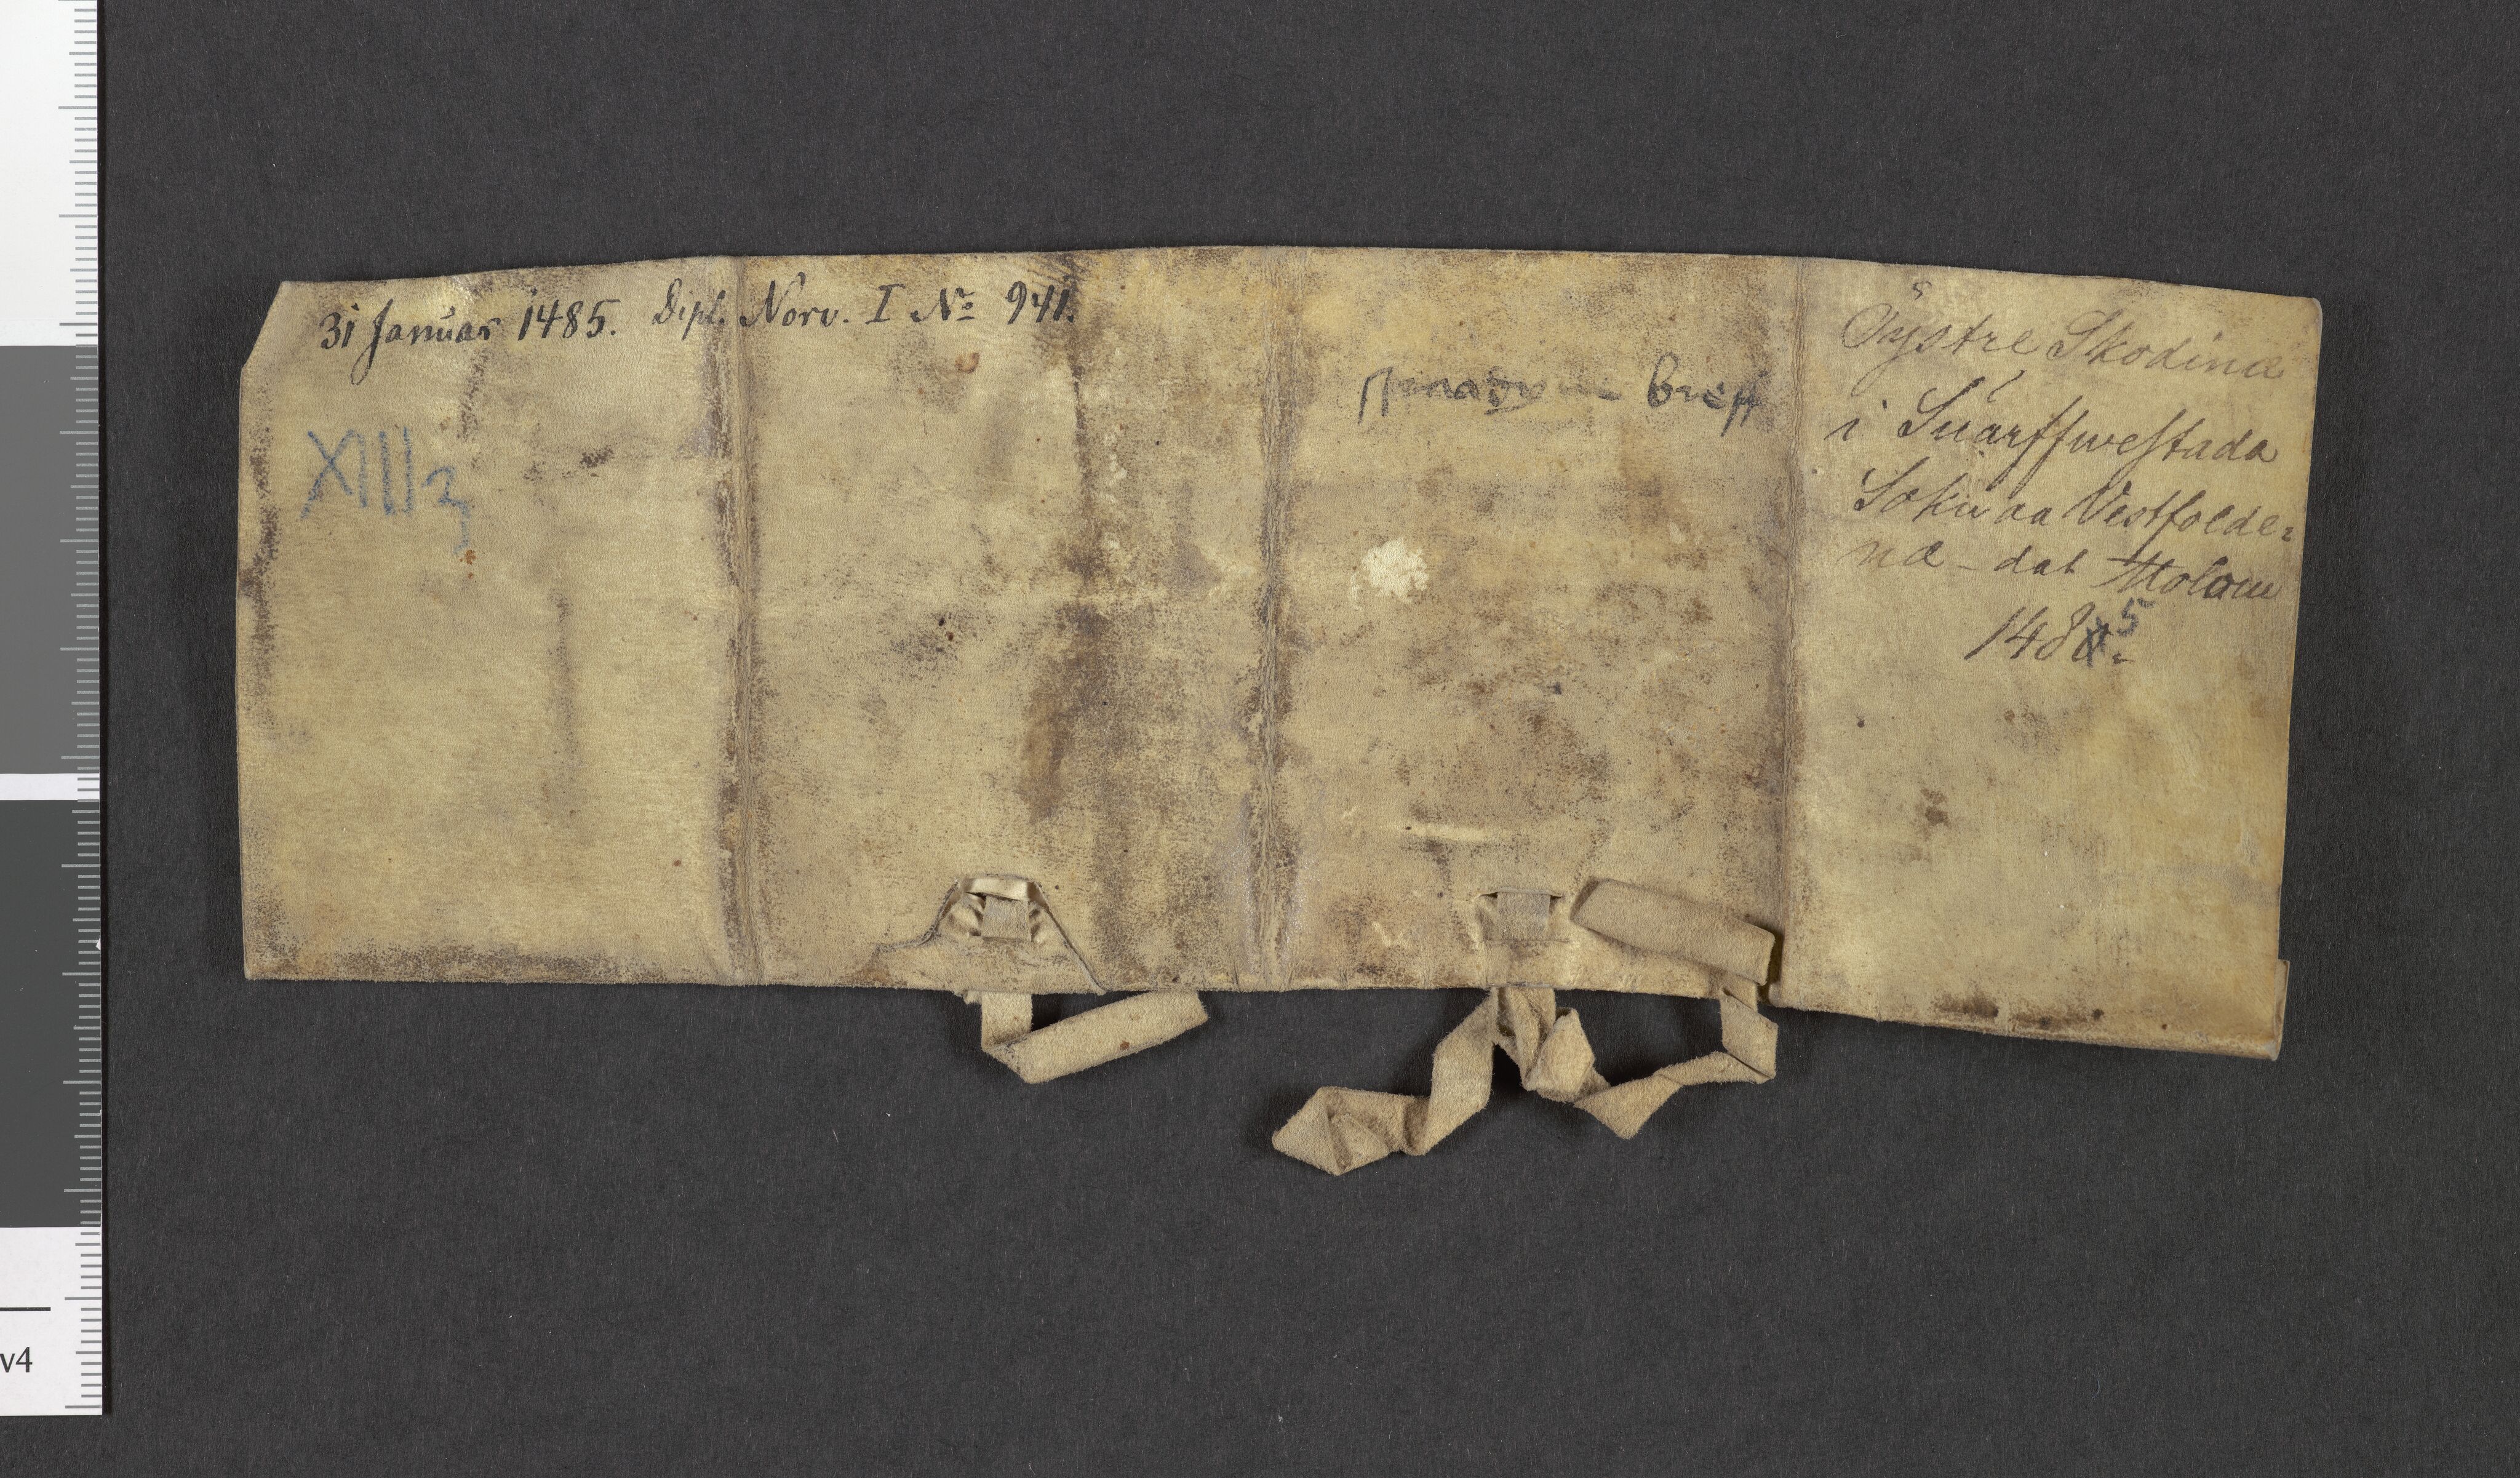 31 Januar 1485. Dipl. Norv. I No 941.
XIII2
breff
Øystre Skodina
i Suarffwestada
Sokn aa Vestfolde=
na - dat Molom
1485
v4